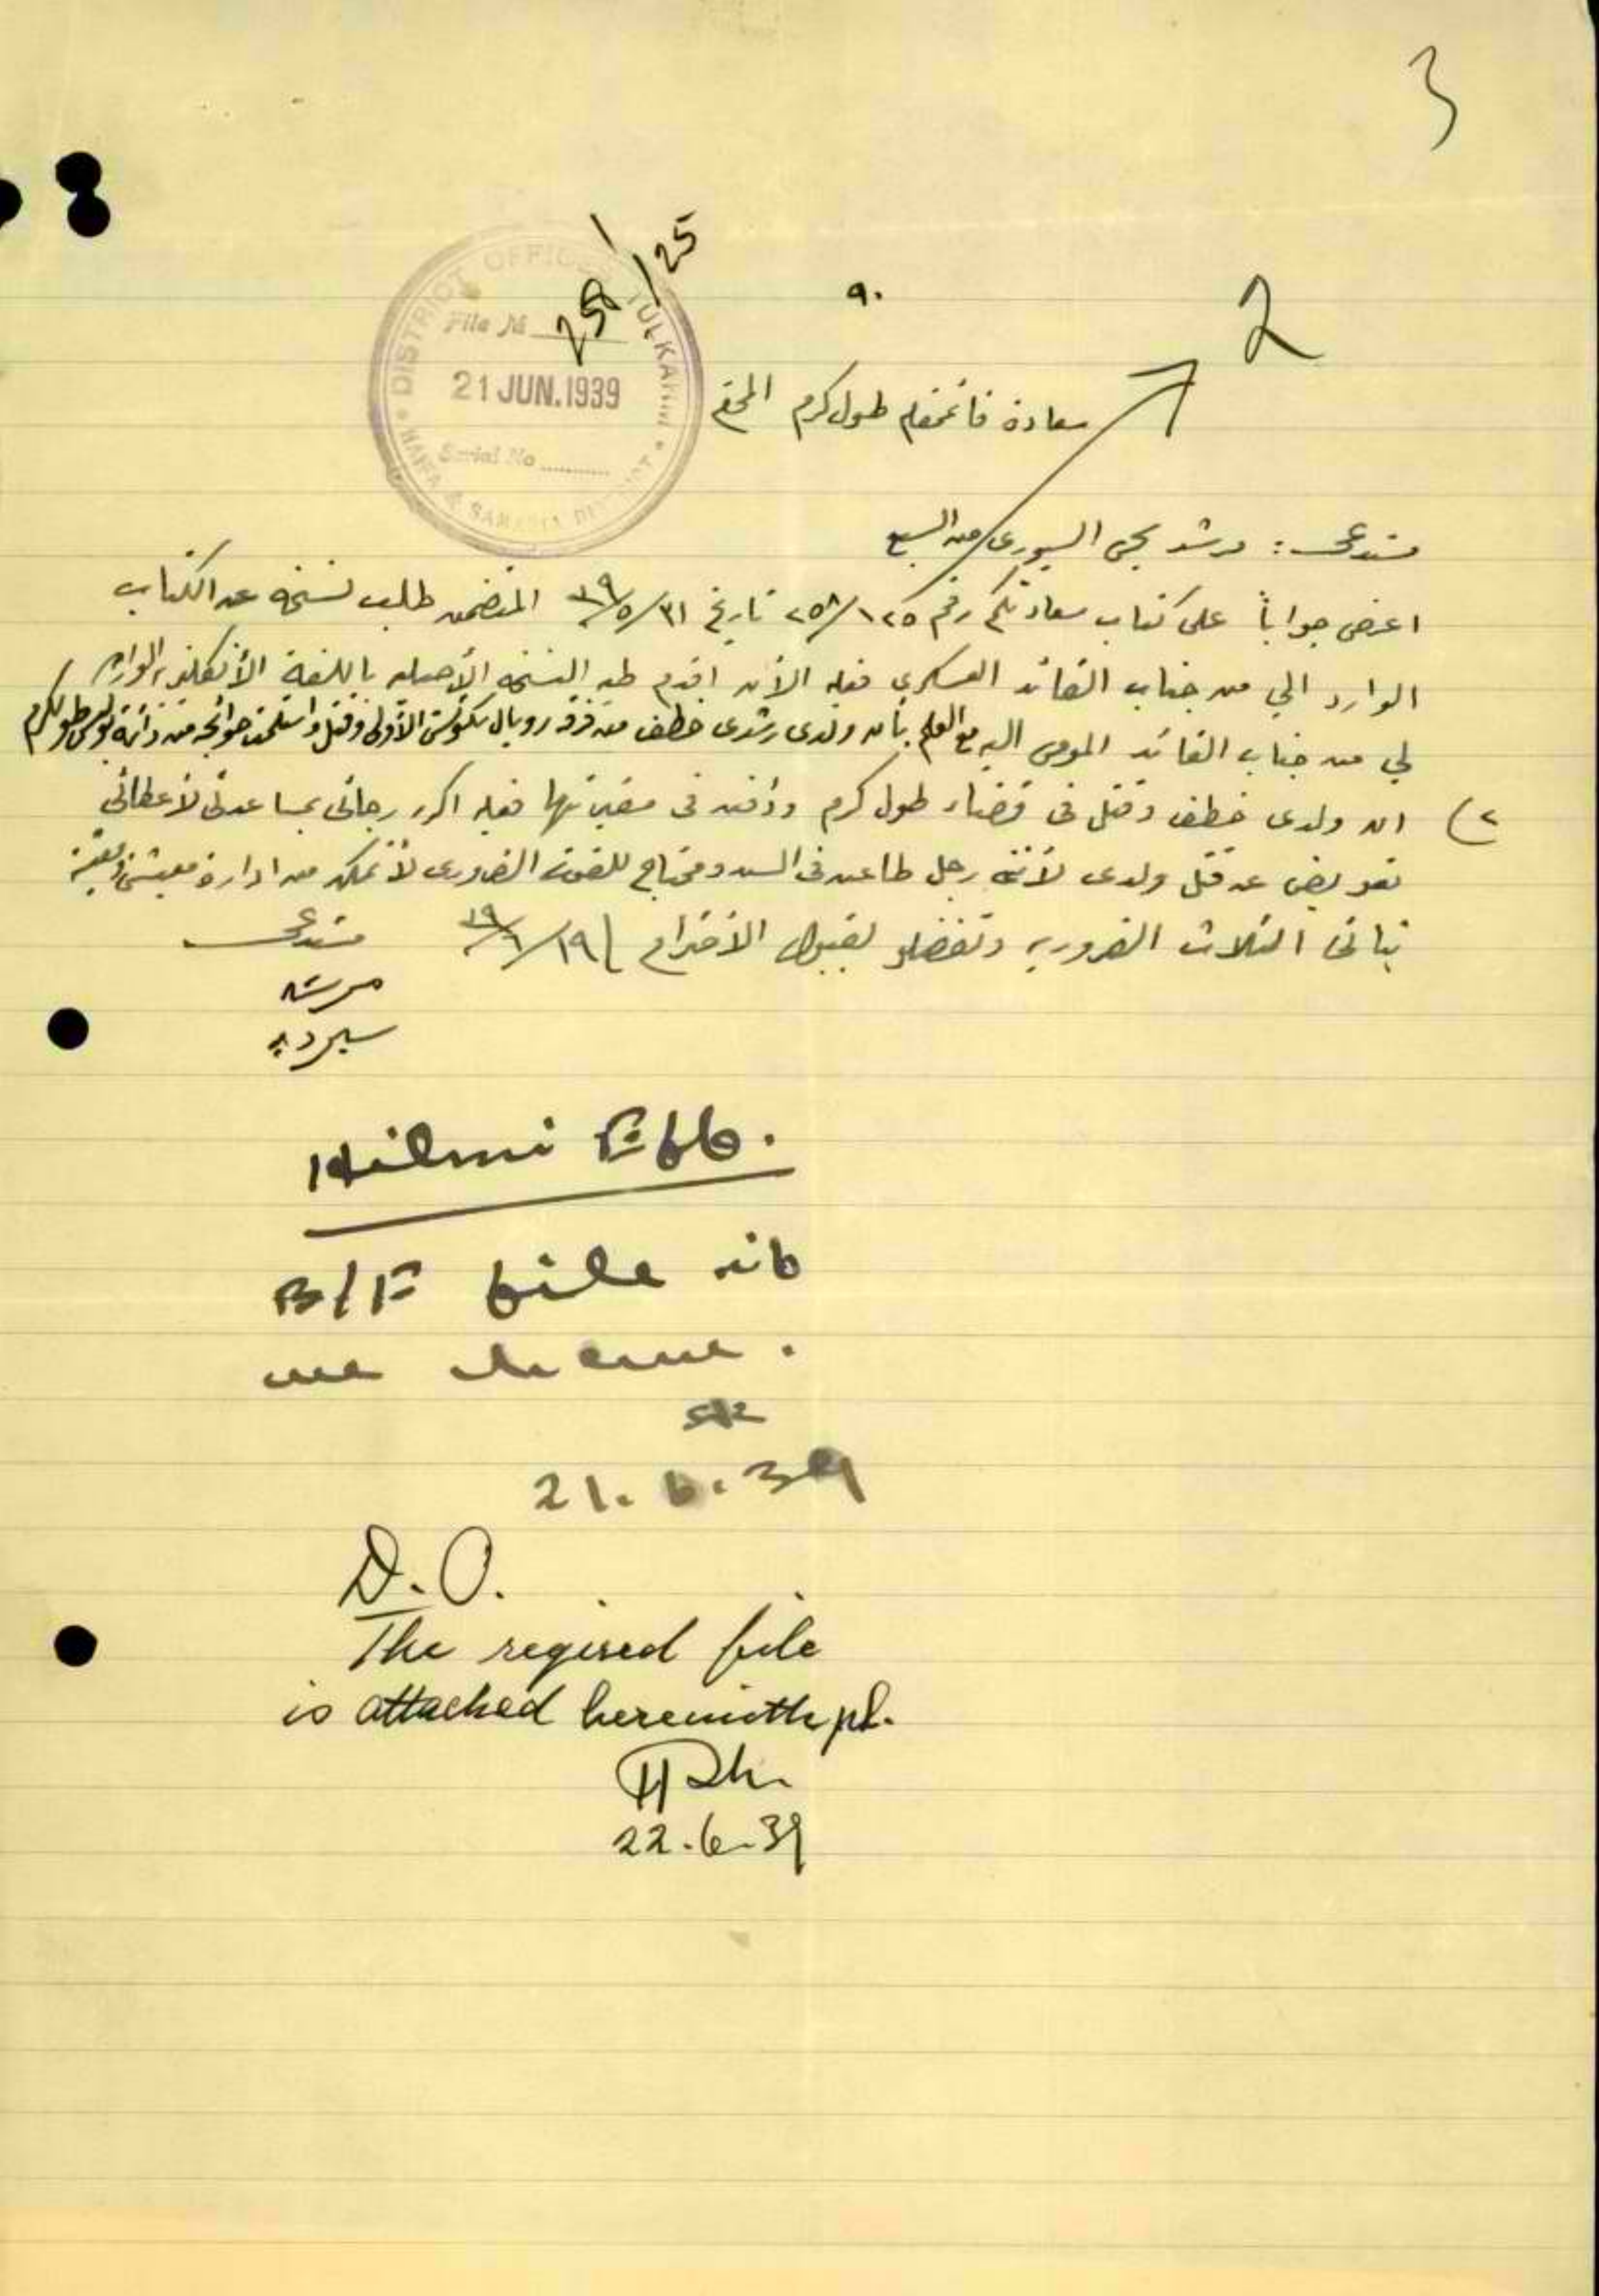 3
258/25
9.
2
DISTRICT OFFICE TULKARM
File No
21 JUN.1939
Serial No
HAIFA & SAMARIA DISTRICT
سعادة قائمقام طولكرم
مستدعى : مرشد يحيى من السبع
اعرض جواباً على كتاب سعادتكم رقم ٢٥٨/١٢٥ تاريخ ٣١/٥/٣٩ المتضمن طلب نسخه عن الكتاب
الوارد الي من جناب القائد العسكري فعليه الآن اقدم طيه النسخه الأصليه باللغة الأنكليزيه الوارده
لي من جناب القائد المومى اليه مع العلم بأن ولدى رشدى خطف من فرقة رويال الأولى وقتل واستلمت حوائجه من دائرة بوليس طولكرم
٢) ان ولدى خطف وقتل فى قضاء طولكرم ودفن فى مقبرتها فعليه اكرر رجائى بمساعدتى لأعطائى
تعويض عن قتل ولدى لأننى رجل طاعن فى السن ومحتاج للقوت الضرورى لأتمكن من ادارة معيشتى ومعيشة
بناتى الثلاث الضروريه وتفضلو بقبول الاحترام ١٩/٦/٣٩
مستدعى
مرشد
Hilmi Eff.
B/F file
me
21.6.39
D.O.
The reqired file
is attached herewith pl.
22.6.39